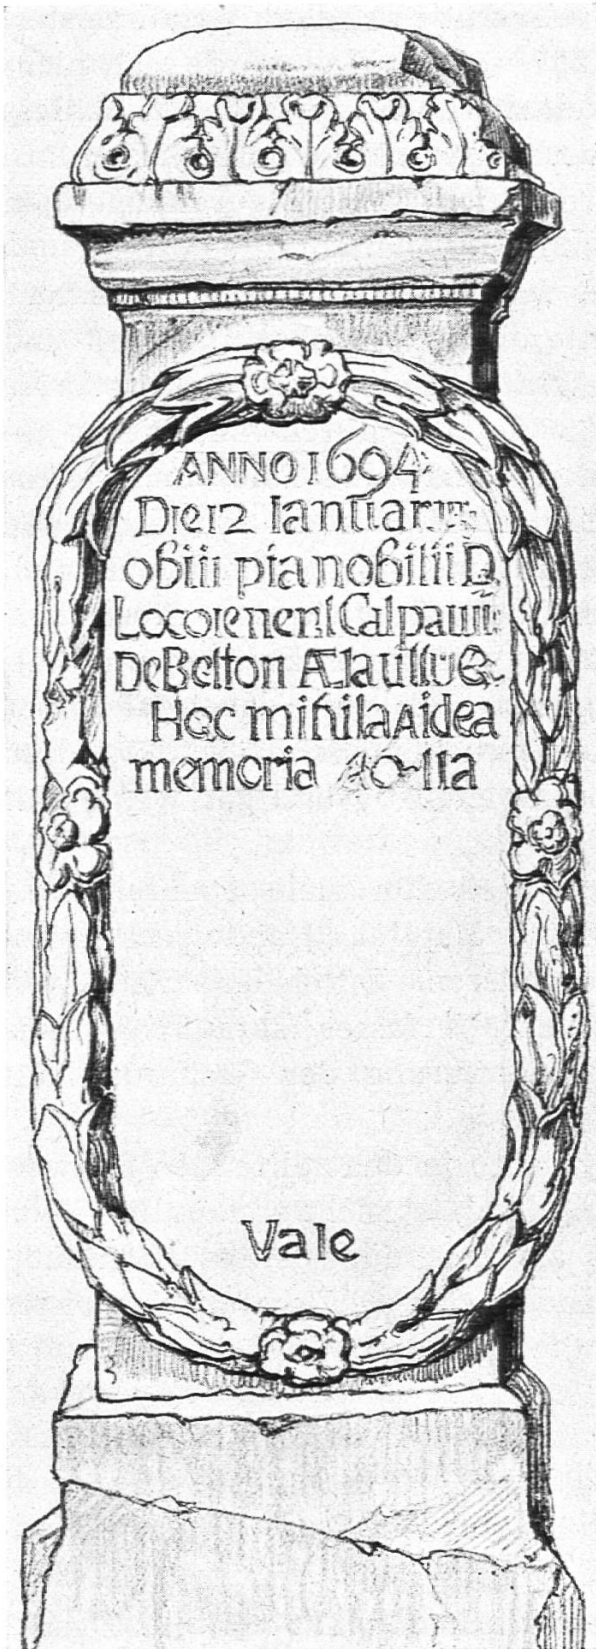 ANNO 1694
Die 12 Ianuarii
obiii pia nobilii D
Locotenenl Calpauii
De Belton Ætauiluæ
Hoc mihila Aidea
memoria 40-11a
Vale